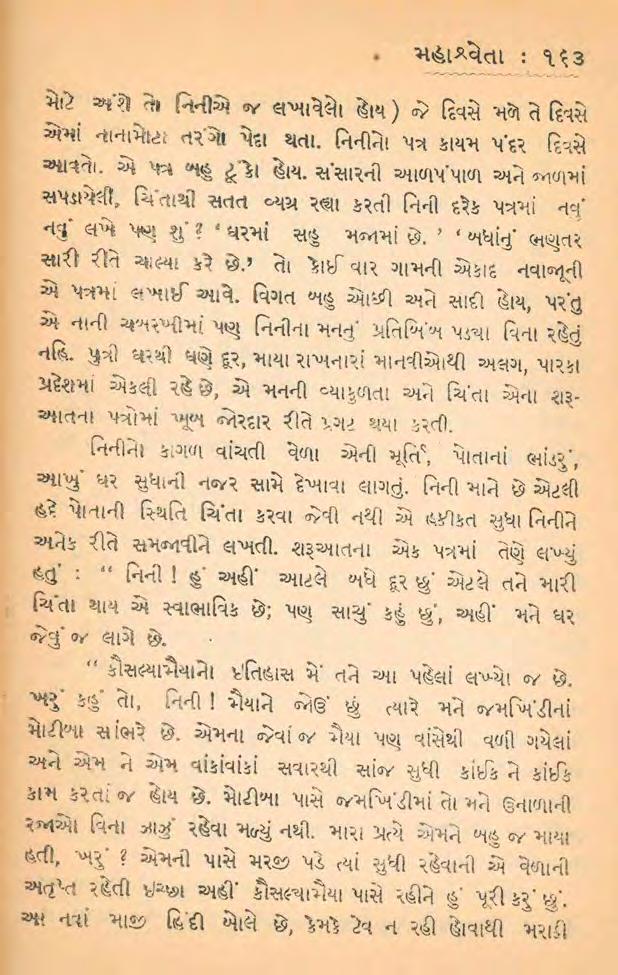 મહાશ્વેતા : ૧૬૩
મોટે અંશે તો નિનીએ જ લખાવેલો હોય) જે દિવસે મળે તે દિવસે
એમાં નાનામોટા તરંગો પેદા થતા. નિનીનો પત્ર કાયમ પંદર દિવસે
આવતો. એ પત્ર બહુ ટૂંકો હોય. સંસારની આળપંપાળ અને જાળમાં
સપડાયેલી, ચિંતાથી સતત વ્યગ્ર રહ્યા કરતી નિની દરેક પત્રમાં નવું
નવું લખે પણ શું ? ‘ ઘરમાં સહુ મજામાં છે. ’ ‘ બધાંનું ભણતર
સારી રીતે ચાલ્યા કરે છે.’ તો કોઈ વાર ગામની એકાદ નવાજૂની
એ પત્રમાં લખાઈ આવે. વિગત બહુ ઓછી અને સાદી હોય, પરંતુ
એ નાની ચબરખીમાં પણ નિનીના મનનું પ્રતિબિંબ પડ્યા વિના રહેતું
નહિ. પુત્રી ઘરથી ઘણે દૂર, માયા રાખનારાં માનવીઓથી અલગ, પારકા
પ્રદેશમાં એકલી રહે છે, એ મનની વ્યાકુળતા અને ચિંતા એના શરૂ-
આતના પત્રોમાં ખૂબ જોરદાર રીતે પ્રગટ થયા કરતી.
નિનીનો કાગળ વાંચતી વેળા એની મૂર્તિ, પોતાનાં ભાંડરું,
આખું ઘર સુધાની નજર સામે દેખાવા લાગતું. નિની માને છે એટલી
હદે પોતાની સ્થિતિ ચિંતા કરવા જેવી નથી એ હકીકત સુધા નિનીને
અનેક રીતે સમજાવીને લખતી. શરૂઆતના એક પત્રમાં તેણે લખ્યું
હતું : “ નિની ! હું અહીં આટલે બધે દૂર છું એટલે તને મારી
ચિંતા થાય એ સ્વાભાવિક છે; પણ સાચું કહું છું, અહીં મને ઘર
જેવું જ લાગે છે.
“ કૌસલ્યામૈયાનો ઇતિહાસ મેં તને આ પહેલાં લખ્યો જ છે.
ખરું કહું તો, નિની ! મૈયાને જોઉં છું ત્યારે મને જમખિંડીનાં
મોટીબા સાંભરે છે. એમના જેવાં જ મૈયા પણ વાંસેથી વળી ગયેલાં
અને એમ ને એમ વાંકાંવાંકાં સવારથી સાંજ સુધી કાંઈક ને કાંઈક
કામ કરતાં જ હોય છે. મોટીબા પાસે જમખિંડીમાં તો મને ઉનાળાની
રજાઓ વિના ઝાઝું રહેવા મળ્યું નથી. મારા પ્રત્યે એમને બહુ જ માયા
હતી, ખરું ? એમની પાસે મરજી પડે ત્યાં સુધી રહેવાની એ વેળાની
અતૃપ્ત રહેતી ઇચ્છા અહીં કૌસલ્યામૈયા પાસે રહીને હું પૂરી કરું છું.
આ નવાં માજી હિંદી બોલે છે, કેમકે ટેવ ન રહી હોવાથી મરાઠી